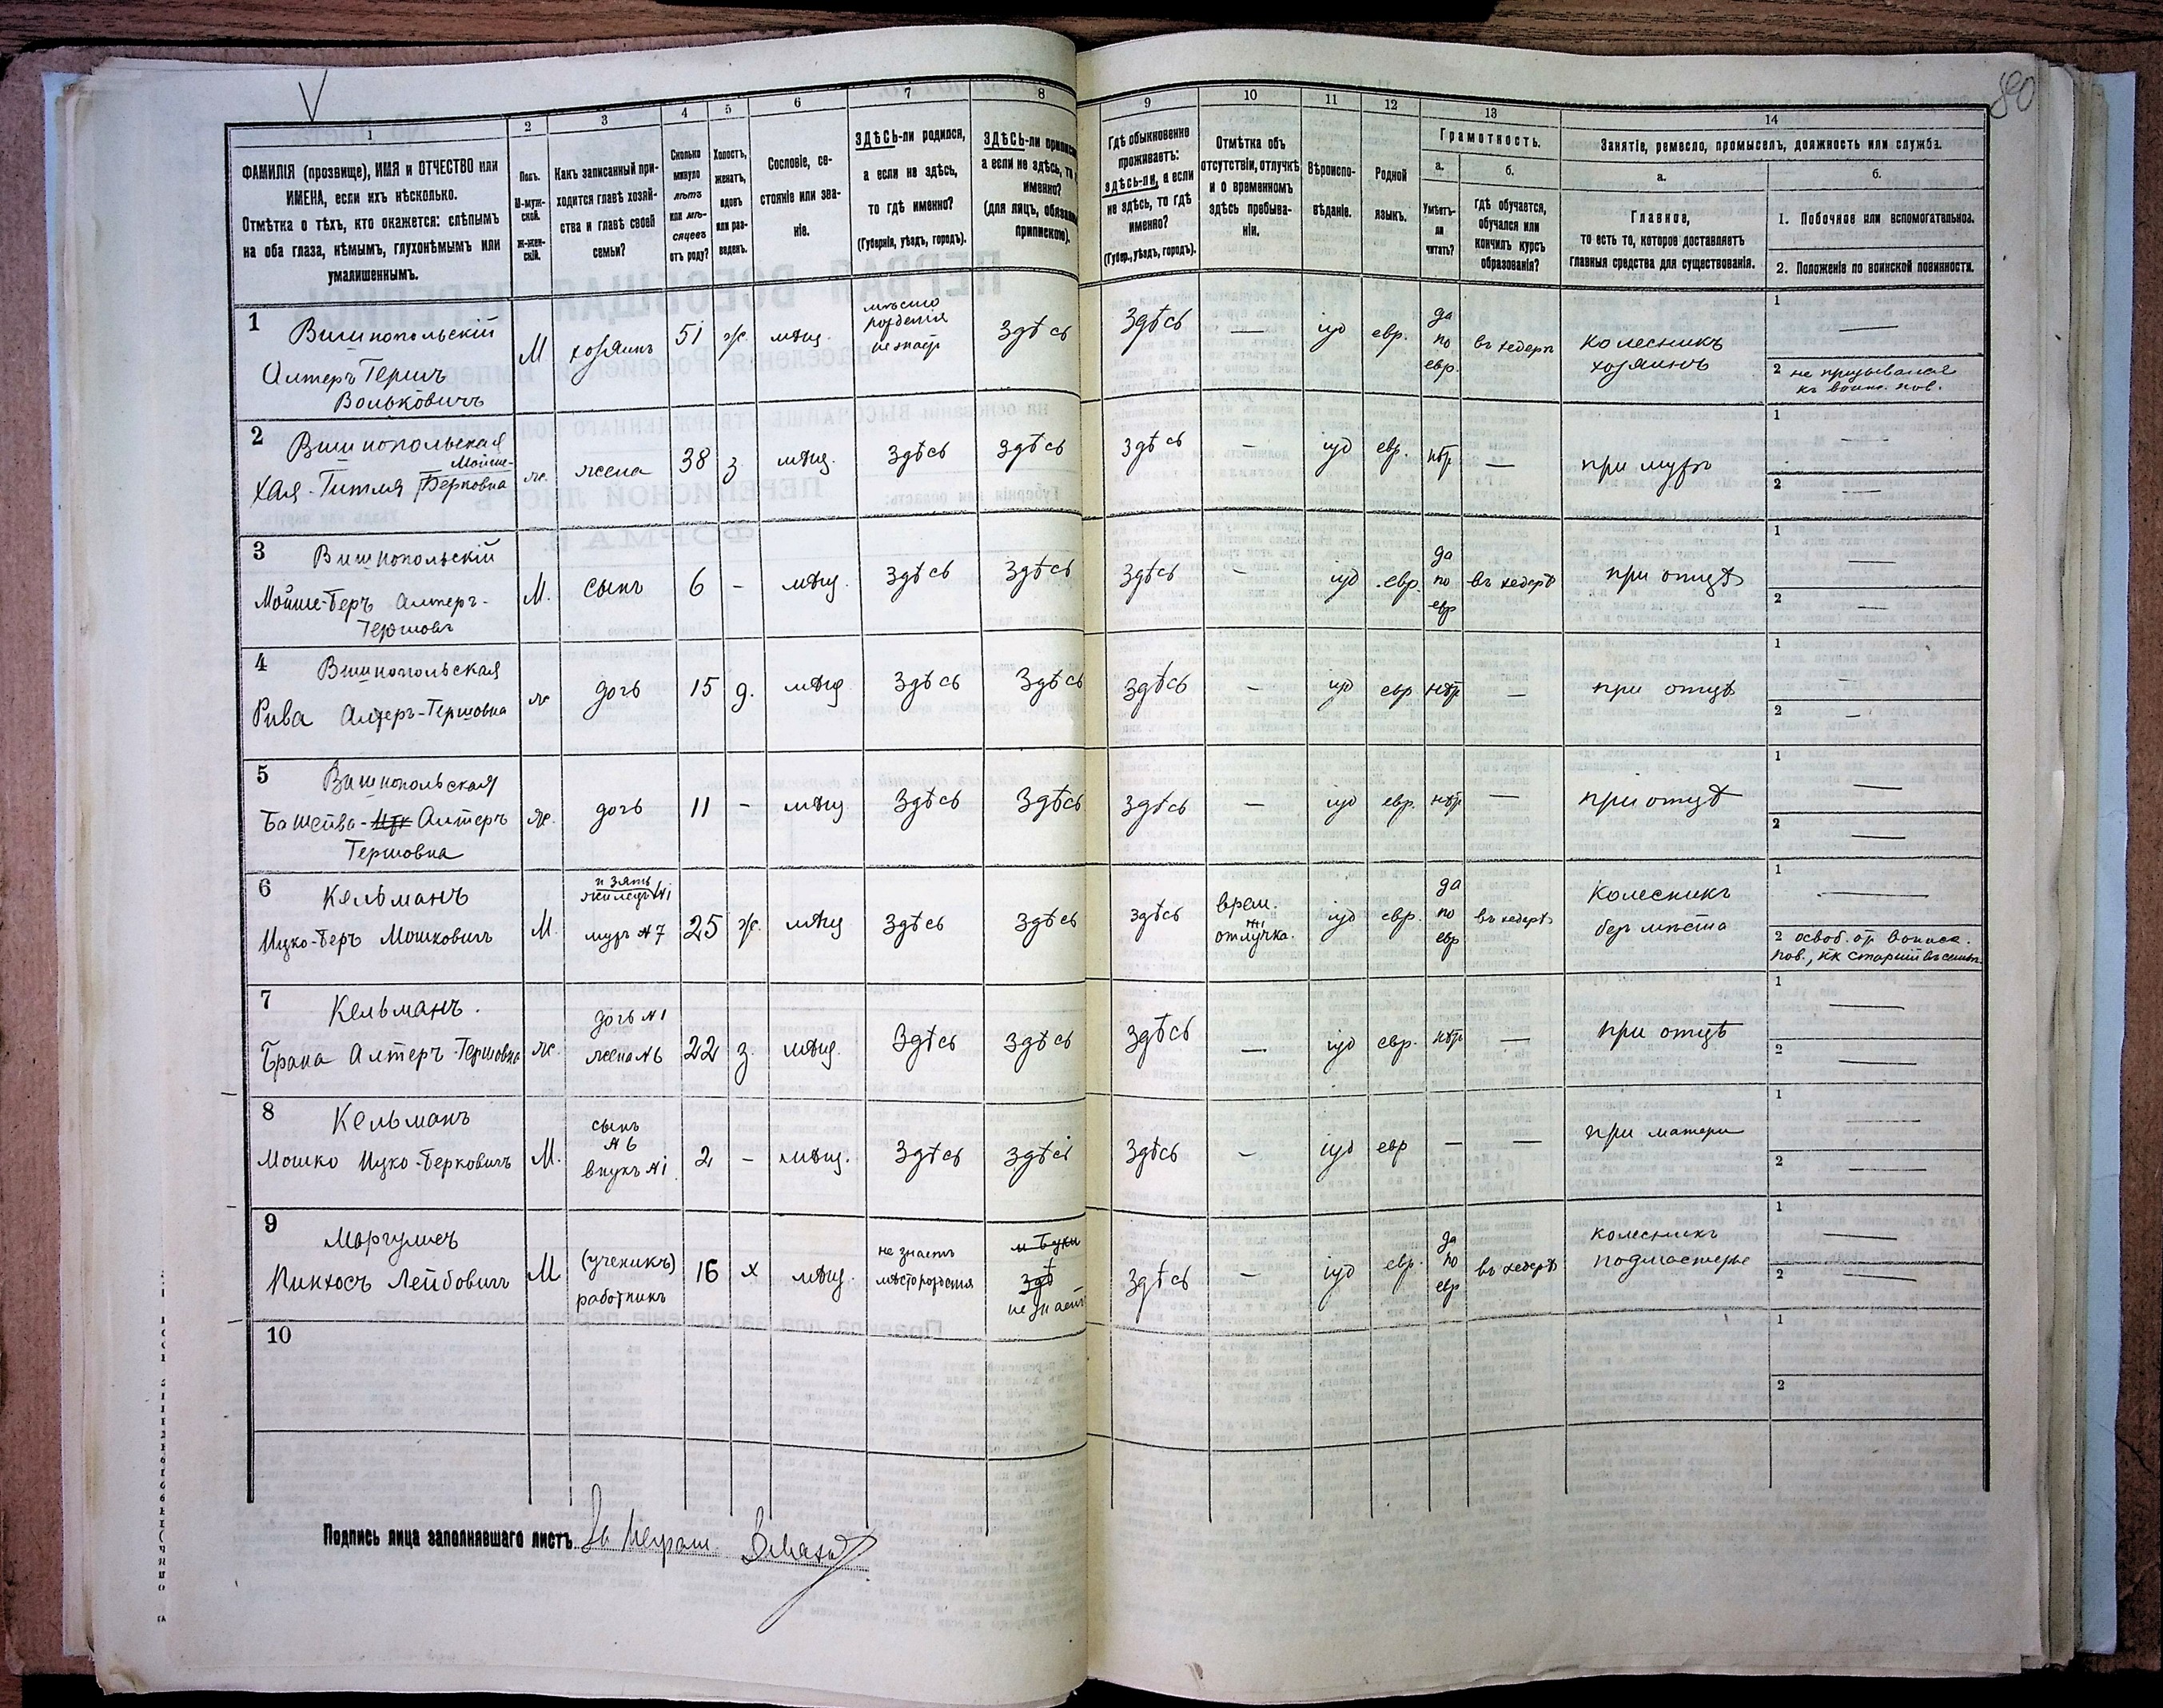 80
1 2 3 4 5 6 7 8 9 10 11 12 13 14
ФАМИЛІЯ (прозвище), ИМЯ и ОТЧЕСТВО или
ИМЕНА, если ихъ нѣсколько.
Отмѣтка о тѣхъ, кто окажется: слѣпымъ
на оба глаза, нѣмымъ, глухонѣмымъ или
умалишеннымъ.
Полъ.
М-муж-
ской.
Ж-жен-
скій.
Какъ записанный при-
ходится главѣ хозяй-
ства и главѣ своей
семьи?
Сколько
минуло
лѣтъ
или мѣ-
сяцевъ
отъ роду?
Холостъ,
женатъ,
вдовъ
или раз-
веденъ.
Сословіе, со-
стояніе или зва-
ніе.
ЗДѢСЬ-ли родился,
а если не здѣсь,
то гдѣ именно?
(Губернія, уѣздъ, городъ).
ЗДѢСЬ-ли
а если не здѣсь,
именно?
(для лицъ,
припискою).
Гдѣ обыкновенно
проживаетъ:
здѣсь-ли, а если
не здѣсь, то гдѣ
именно?
(Губер., уѣздъ, городъ).
Отмѣтка объ
отсутствіи, отлучкѣ
и о временномъ
здѣсь пребыва-
ніи.
Вѣроиспо-
вѣданіе.
Родной
языкъ.
Грамотность.
а.
Умѣетъ-
ли
читать?
б.
гдѣ обучается,
обучался или
кончилъ курсъ
образованія?
Занятіе, ремесло, промыселъ, должность или служба.
а.
Главное,
то есть то, которое доставляетъ
главныя средства для существованія.
б.
1. Побочное или вспомогательное.
2. Положеніе по воинской повинности.
1 Вишнопольскій
Алтеръ Гершъ
Вольковичъ
М хозяинъ 51 ж. мѣщ.
мѣсто
рожденія
не знаетъ
здѣсь здѣсь — іуд евр.
да
по
евр.
въ хедерѣ
колесникъ
хозяинъ
1 —
2 не призывался
къ воин. пов.
2 Вишнопольская
Мойше-
Хая-Гитля Берковна
ж. жена 38 з мѣщ. здѣсь здѣсь здѣсь — іуд евр. нѣт — при мужѣ
1 —
2 —
3 Вишнопольскій
Мойше-Беръ Алтеръ-
Гершовъ
М. сынъ 6 — мѣщ. здѣсь здѣсь здѣсь — іуд евр.
да
по
евр
въ хедерѣ при отцѣ
1 —
2 —
4 Вишнопольская
Рива Алтеръ-Гершовна
ж дочь 15 д. мѣщ здѣсь здѣсь здѣсь — іуд евр нѣт — при отцѣ
1 —
2 —
5 Вишнопольская
Башейва- Алтеръ
Гершовна
ж. дочь 11 — мѣщ здѣсь здѣсь здѣсь — іуд евр. нѣт — при отцѣ
1 —
2 —
6 Кельманъ
Ицко-Беръ Мошковичъ
М.
и зять
№1
мужъ №7
25 ж. мѣщ здѣсь здѣсь здѣсь
врем.
отлучка.
іуд евр.
да
по
евр
въ хедерѣ
колесникъ
безъ мѣста
1 —
2 освоб. от воинск.
пов., кк старшій въ семьѣ
7 Кельманъ.
Брана Алтеръ-Гершовна
ж.
дочь №1
жена №6
22 з. мѣщ. здѣсь здѣсь здѣсь — іуд евр. нѣт — при отцѣ
1 —
2 —
8 Кельманъ
Мошко Ицко-Берковичъ
М.
сынъ
№6
внукъ №1
2 — мѣщ. здѣсь здѣсь здѣсь — іуд евр — — при матери
1 —
2 —
9 Маргулисъ
Пинхосъ Лейбовичъ
М
(ученикъ)
работникъ
16 х мѣщ.
не знаетъ
мѣсторожденія
здѣ
не знаетъ
здѣсь — іуд евр.
да
по
евр
въ хедерѣ
колесникъ
подмастерье
1 —
2 —
10
1
2
Подпись лица заполнявшаго листъ